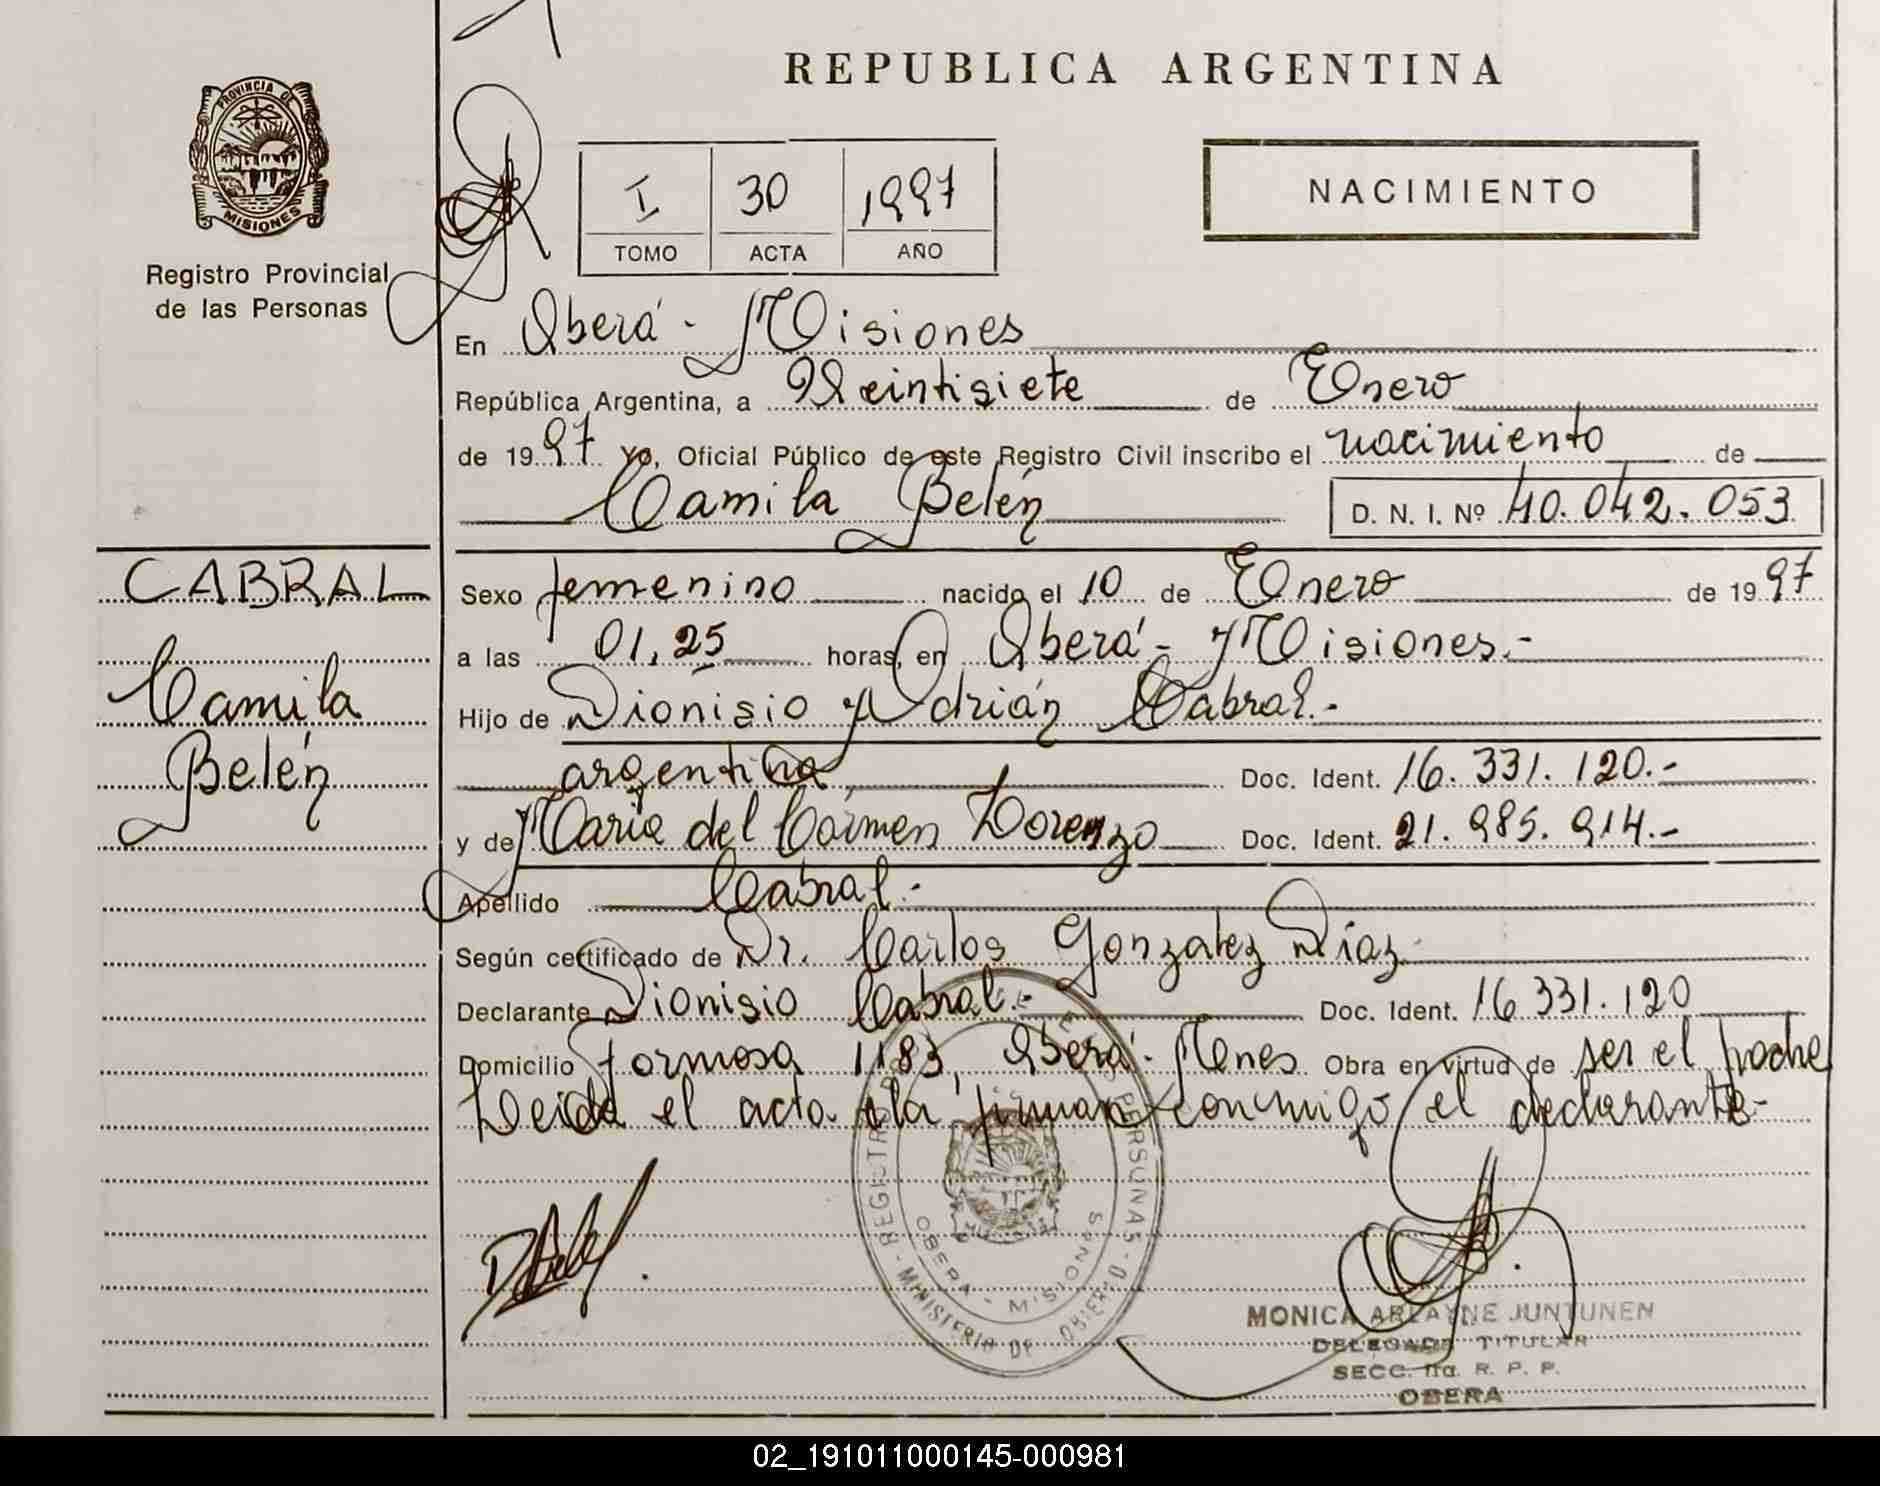 REPUBLICA ARGENTINA
PROVINCIA DE
MISIONES
Registro Provincial
de las Personas
I 30 1997
TOMO ACTA AÑO
NACIMIENTO
En Oberá - Misiones
República Argentina, a Veintisiete de Enero
de 1997 Yo, Oficial Público de este Registro Civil inscribo el nacimiento de
Camila Belén D. N. I. Nº 40.042.053
CABRAL
Camila
Belén
Sexo femenino nacido el 10 de Enero de 1997
a las 01,25 horas, en Oberá - Misiones.-
Hijo de Dionisio Adrián Cabral.-
argentina Doc. Ident. 16.331.120.-
y de María del Cármen Lorenzo Doc. Ident. 21.985.914.-
Apellido Cabral.-
Según certificado de Dr. Carlos Gonzalez Díaz.
Declarante Dionisio Cabral.- Doc. Ident. 16.331.120
Domicilio Formosa 1183, Oberá - Mnes Obra en virtud de ser el padre
Leida el acta la firman conmigo el declarante-
REGISTRO DE LAS PERSONAS
MINISTERIO DE GOBIERNO
OBERA - MISIONES
MONICA ARLAYNE JUNTUNEN
DELEGADA TITULAR
SECC. 1ra. R. P. P.
OBERA
02_191011000145-000981